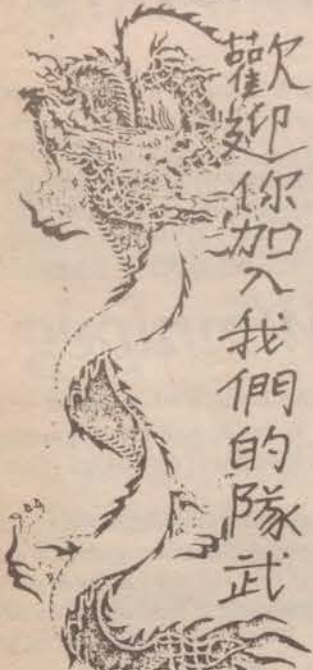 歡迎你加入我們的隊武